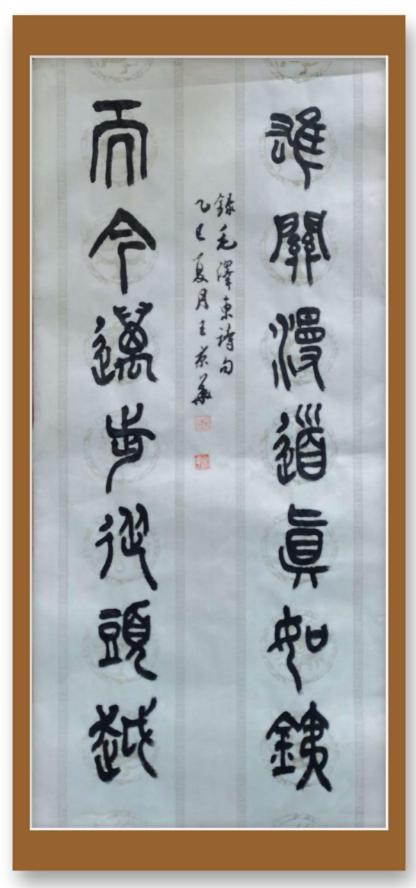 雄關漫道真如鐵
而今邁步從頭越
錄毛澤東詩句
乙巳夏月王京華